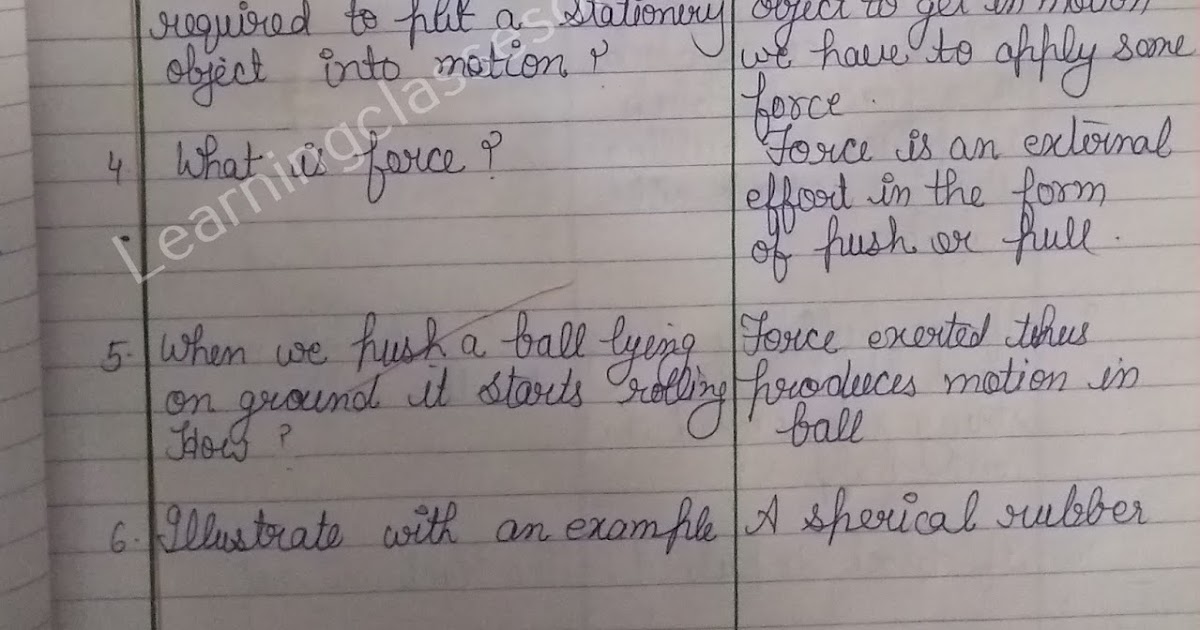 required to put a stationery
object into motion ?
object to get in motion
we have to apply some
force.
4 What is force ?
Force is an external
effort in the form
of push or pull.
5. When we push a ball lying
on ground it starts rolling
How ?
Force exerted thus
produces motion in
ball
6. Illustrate with an example
A sperical rubber
Learningclasses